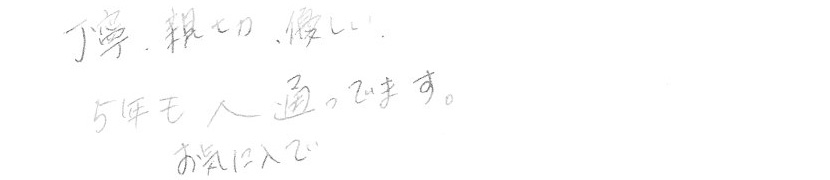 丁寧、親切、優しい、
5年も入通ってます。
お気に入で